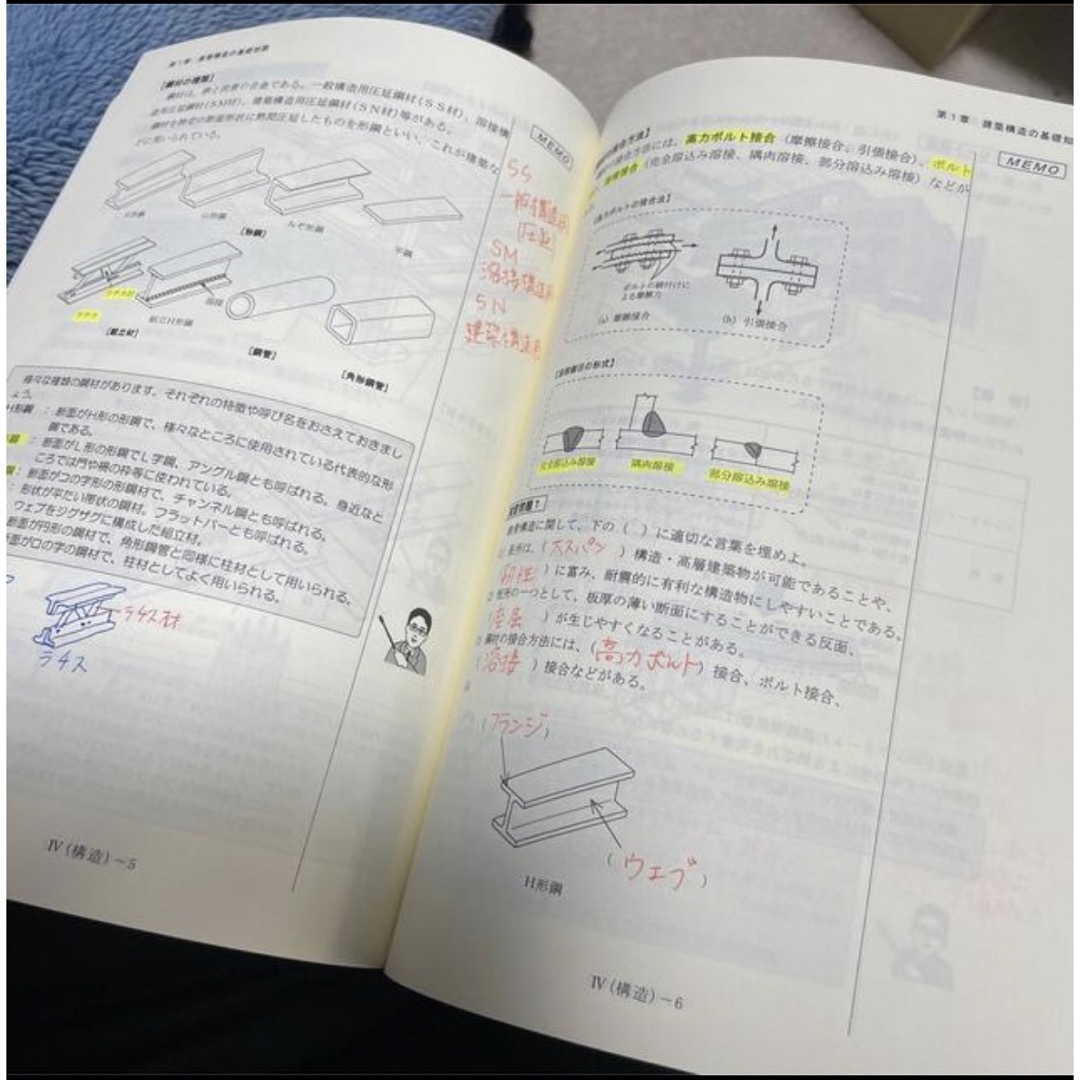 第1章 建築構造の基礎知識
[鋼材の種類]
鋼材は、鉄と炭素の合金である。一般構造用圧延鋼材（SS材）、溶接構
造用圧延鋼材（SM材）、建築構造用圧延鋼材（SN材）等がある。
鋼材を特定の断面形状に熱間圧延したものを形鋼といい、これが建築な
どに用いられている。
H形鋼
山形鋼
みぞ形鋼
平鋼
[形鋼]
ラチス材
ラチス
溶接
組立H形鋼
[組立材]
[鋼管]
[角形鋼管]
様々な種類の鋼材があります。それぞれの特徴や呼び名をおさえておきまし
ょう。
H形鋼 ：断面がH形の形鋼で、様々なところに使用されている代表的な形
鋼である。
鋼：断面がL形の形鋼でL字鋼、アングル鋼とも呼ばれる。身近なと
ころでは門や柵の枠等に使われている。
鋼：断面がコの字形の形鋼材で、チャンネル鋼とも呼ばれる。
：形状が平たい帯状の鋼材。フラットバーとも呼ばれる。
ウェブをジグザグに構成した組立材。
断面が円形の鋼材で、角形鋼管と同様に柱材として用いられる。
面がロの字の鋼材で、柱材としてよく用いられる。
ラチス材
ラチス
MEMO
SS
一般構造用
(圧延)
SM
溶接構造用
SN
建築構造用
Ⅳ（構造）－5
第1章 建築構造の基礎知
接合方法】
接合方法には、高力ボルト接合（摩擦接合、引張接合）、ボルト
溶接接合（完全溶込み溶接、隅肉溶接、部分溶込み溶接）などが
MEMO
【高力ボルトの接合法】
ボルトの締付けに
よる摩擦力
(a) 摩擦接合
(b) 引張接合
【溶接継目の形式】
完全溶込み溶接
隅肉溶接
部分溶込み溶接
問題1
構造に関して、下の（ ）に適切な言葉を埋めよ。
長所は、（大スパン）構造・高層建築物が可能であることや、
（靭性）に富み、耐震的に有利な構造物にしやすいことである。
短所の一つとして、板厚の薄い断面にすることができる反面、
（座屈）が生じやすくなることがある。
鋼材の接合方法には、（高力ボルト）接合、ボルト接合、
（溶接）接合などがある。
（フランジ）
（ウェブ）
H形鋼
Ⅳ（構造）－6